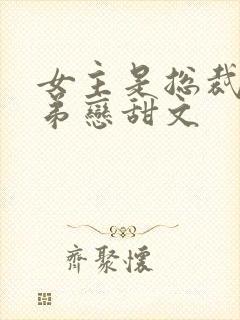 女主是总裁
弟戀甜文
齊聚懷